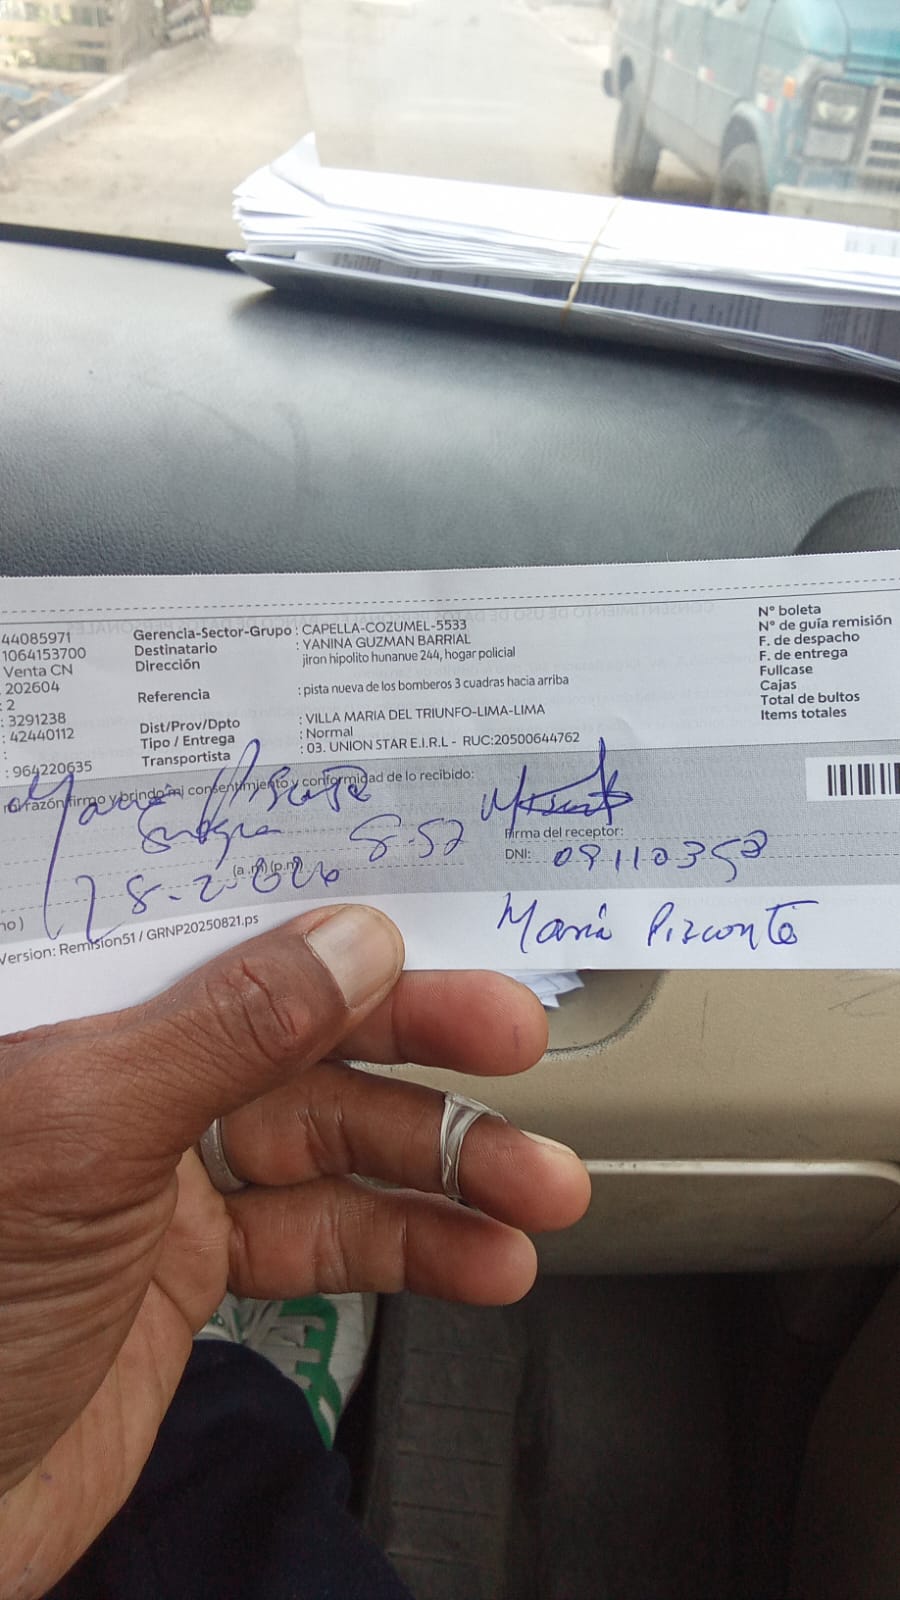 44085971
1064153700
Venta CN
202604
: 2
: 3291238
: 42440112
:
: 964220635
Gerencia-Sector-Grupo : CAPELLA-COZUMEL-5533
Destinatario : YANINA GUZMAN BARRIAL
Dirección jiron hipolito hunanue 244, hogar policial
Referencia : pista nueva de los bomberos 3 cuadras hacia arriba
Dist/Prov/Dpto : VILLA MARIA DEL TRIUNFO-LIMA-LIMA
Tipo / Entrega : Normal
Transportista : 03. UNION STAR E.I.R.L - RUC:20500644762
N° boleta
N° de guía remisión
F. de despacho
F. de entrega
Fullcase
Cajas
Total de bultos
Items totales
razón firmo y brindo mi consentimiento y conformidad de lo recibido:
Suegra 8:52
Firma del receptor:
DNI: 09110358
(a.m) (p.m)
28-2-2026
no )
Version: Remision51 / GRNP20250821.ps
María Pizconte